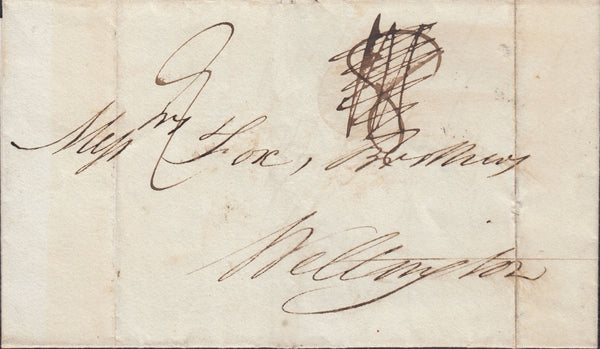 8
2
Mess rs Fox, Brothers
Wellington